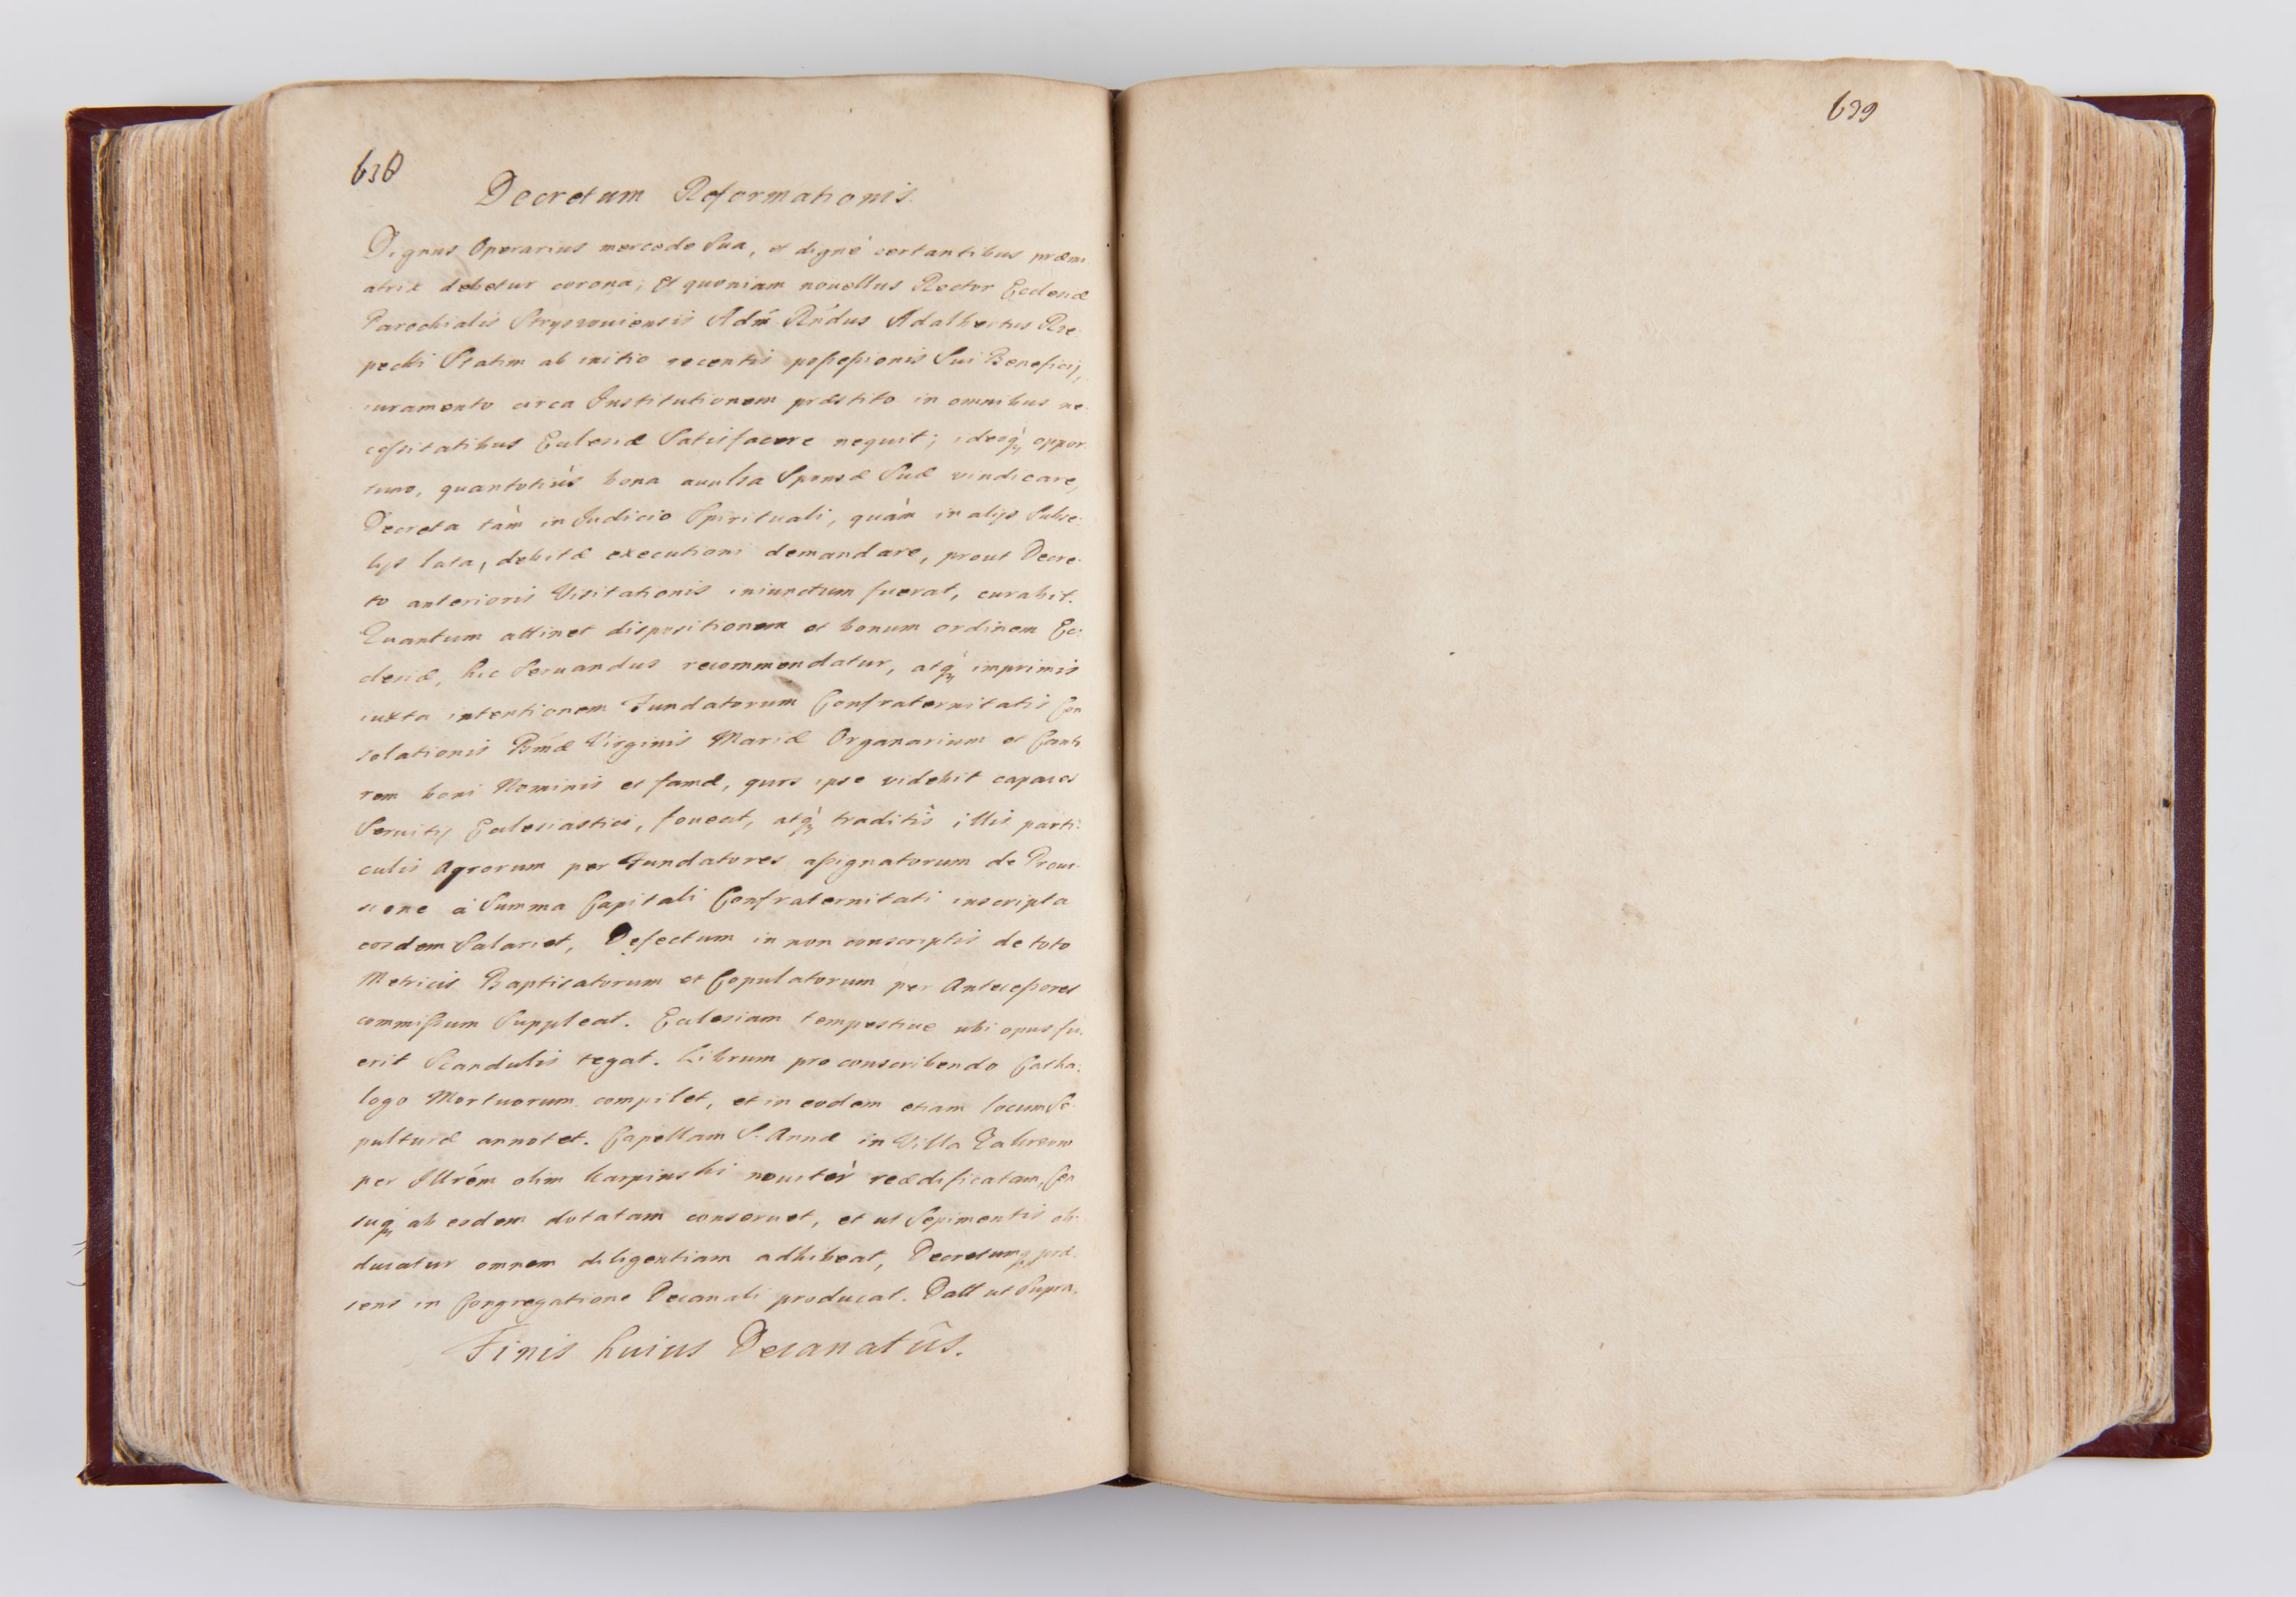 638
Decretum Reformationis.
Dignus Operarius mercede Sua, et dignè certantibus præmi
atrix debetur corona; Et quoniam nouellus Rector Ecclesiæ
Parochialis Stryszouiensis Adm̃ Rñdus Adalbertus Rze
pecki Statim ab initio recentis possessionis Sui Beneficij,
iuramento circa Institutionem præstito in omnibus ne
cessitatibus Ecclesiæ Satisfacere nequit; ideoq̀ oppor
tuno, quantotiùs bona auulsa Sponsæ Suæ vindicare,
Decreta tàm in Judicio Spirituali, quàm in alijs Subse
lijs lata, debitæ executioni demandare, prout Decre
to anterioris Visitationis iniunctum fuerat, curabit.
Quantum attinet dispositionem et bonum ordinem Ec
clesiæ, hic Seruandus recommendatur, atq̀ imprimis
iuxta intentionem Fundatorum Confraternitatis Con
solationis Bmæ Virginis Mariæ Organarium et Canto
rem boni Nominis et famæ, quos ipse videbit capaces
Seruitij Ecclesiastici, foueat, atq̀ traditis illis parti:
culis Agrorum per Fundatores assignatorum de Proui
sione à Summa Capitali Confraternitati inscripta
eosdem Salariet, Defectum in non conscriptis de toto
Metricis Baptisatorum et Copulatorum per Antecessores
commissum Suppleat. Ecclesiam tempestiue ubi opus fu
erit Scandulis tegat. Librum pro conscribendo Catha:
logo Mortuorum compilet, et in eodem etiam locum Se
pulturæ annotet. Capellam S. Annæ in Villa
per Illrẽm olim Karpinski nouitèr reædificatam, Cen
suq̀ ab eodem dotatam conseruet, et ut Sepimentis ob
ducatur omnem diligentiam adhibeat, Decretumq̀ præ
sens in Congregatione Decanali producat. Datt ut Supra.
Finis huius Decanatûs.
639